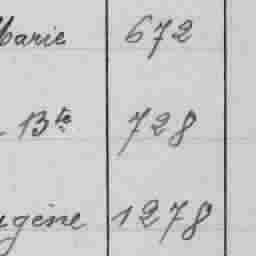 Marie 672
Bte 728
ugène 1278